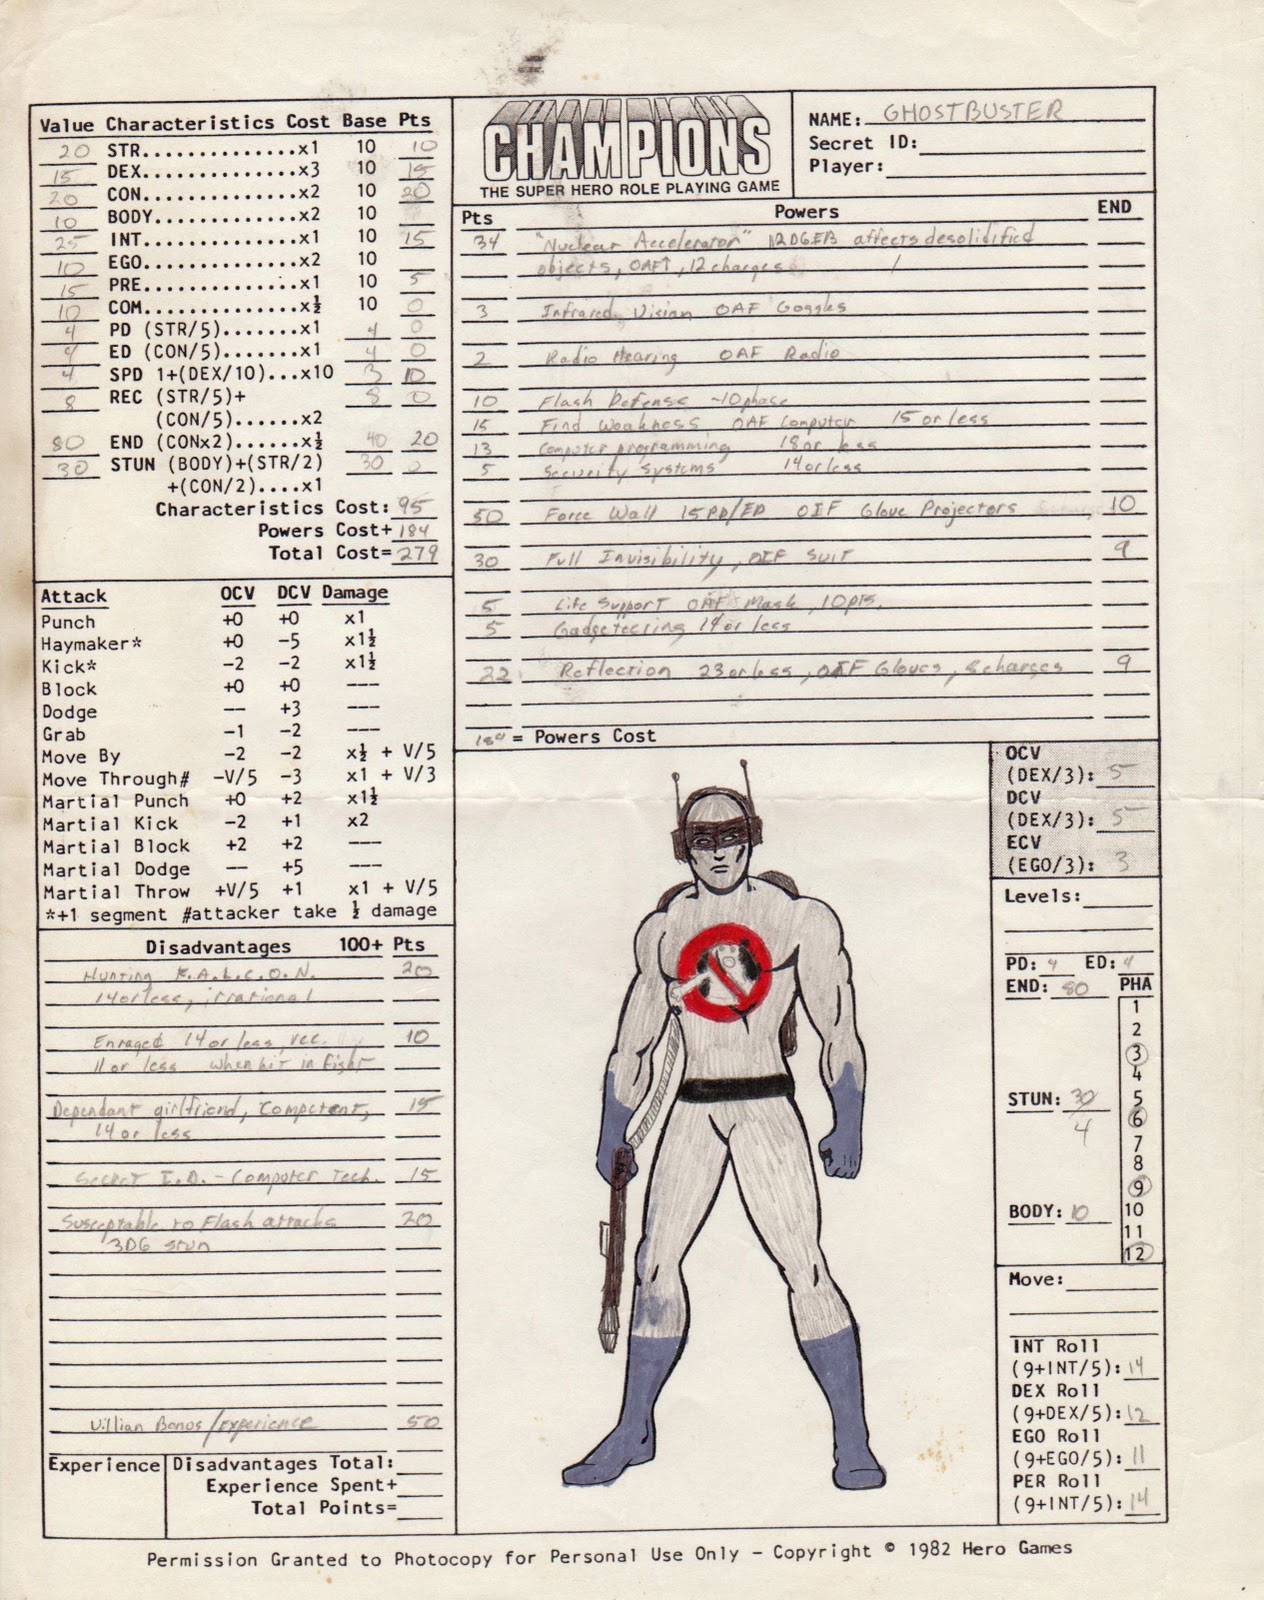 Value Characteristics Cost Base Pts
20 STR..............x1 10 10
15 DEX..............x3 10 15
20 CON..............x2 10 20
10 BODY.............x2 10
25 INT..............x1 10 15
10 EGO..............x2 10
15 PRE..............x1 10 5
10 COM..............x½ 10 0
4 PD (STR/5).......x1 4 0
4 ED (CON/5).......x1 4 0
4 SPD 1+(DEX/10)...x10 3 10
8 REC (STR/5)+ 8 0
(CON/5)......x2
80 END (CONx2)......x½ 40 20
30 STUN (BODY)+(STR/2) 30 0
+(CON/2)....x1
Characteristics Cost: 95
Powers Cost+ 184
Total Cost= 279
CHAMPIONS
CHAMPIONS
THE SUPER HERO ROLE PLAYING GAME
NAME: GHOSTBUSTER
Secret ID:
Player:
Pts Powers END
34 "Nuclear Accelerator" 12D6EB affects desolidified
objects, OAF, 12 charges /
3 Infrared Vision OAF Goggles
2 Radio Hearing OAF Radio
10 Flash Defense -10 phase
15 Find Weakness OAF Computer 15 or less
13 Computer programming 18 or less
5 Security Systems 14 or less
50 Force Wall 15 PD/ED OIF Glove Projectors 10
30 Full Invisibility, OIF Suit 9
5 Life Support OAF Mask, 10pts.
5 Gadgeteering 14 or less
22 Reflection 23 or less, OIF Gloves, 8 charges 9
184 = Powers Cost
Attack OCV DCV Damage
Punch +0 +0 x1
Haymaker* +0 -5 x1½
Kick* -2 -2 x1½
Block +0 +0 ---
Dodge -- +3 ---
Grab -1 -2 ---
Move By -2 -2 x½ + V/5
Move Through# -V/5 -3 x1 + V/3
Martial Punch +0 +2 x1½
Martial Kick -2 +1 x2
Martial Block +2 +2 ---
Martial Dodge -- +5 ---
Martial Throw +V/5 +1 x1 + V/5
*+1 segment #attacker take ½ damage
Disadvantages 100+ Pts
Hunting F.A.L.C.O.N. 20
14 or less, irrational
Enraged 14 or less, rec. 10
11 or less when hit in fight
Dependant girlfriend, Competent, 15
14 or less
Secret I.D. - Computer Tech. 15
Susceptable to Flash attacks 20
3D6 stun
Villian Bonos/experience 50
Experience
Disadvantages Total:
Experience Spent+
Total Points=
OCV
(DEX/3): 5
DCV
(DEX/3): 5
ECV
(EGO/3): 3
Levels:
PD: 4 ED: 4
END: 80 PHA
1
2
3
4
STUN: 30 5
4
6
7
8
9
BODY: 10 10
11
12
Move:
INT Roll
(9+INT/5): 14
DEX Roll
(9+DEX/5): 12
EGO Roll
(9+EGO/5): 11
PER Roll
(9+INT/5): 14
Permission Granted to Photocopy for Personal Use Only - Copyright © 1982 Hero Games